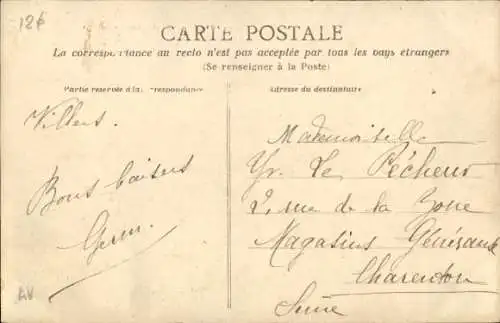 12€
CARTE POSTALE
La correspondance au recto n'est pas acceptée par tous les pays étrangers
(Se renseigner à la Poste)
Partie réservée à la correspondance
Adresse du destinataire
Villers.
Bons baisers
Germ.
Mademoiselle
Yv. Le Pécheur
2, rue de la Zone
Magasins Généraux
Charenton
Seine
AV